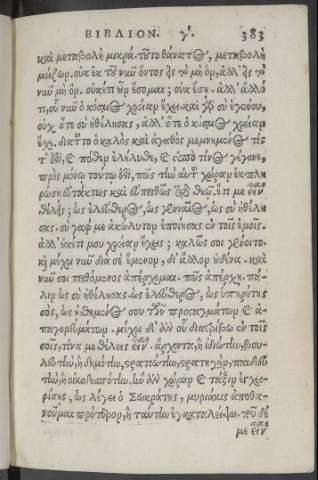 ΒΙΒΛΙΟΝ. γʹ. 383
καὶ μεταβολὴ μικρά. τοῦτο θάνατος, μεταβολὴ
μείζων. οὐκ ἐκ τοῦ νῦν ὄντος εἰς τὸ μὴ ὄν, ἀλλ' εἰς τὸ
νῦν μὴ ὄν. οὐκέτι οὖν ἔσομαι; οὐκ ἔσῃ. ἀλλ' ἄλλό
τι, οὗ νῦν ὁ κόσμος χρείαν ἔχει. καὶ γὰρ σὺ ἐγένου,
οὐχ ὅτε σὺ ἠθέλησας, ἀλλ' ὅτε ὁ κόσμος χρείαν
ἔχε. διὰ τοῦτο ὁ καλὸς καὶ ἀγαθὸς μεμνημένος τίς
τ' ἐστί, καὶ πόθεν ἐλήλυθε, καὶ ὑπὸ τίνος γέγονε,
πρὸς μόνῳ τούτῳ ἐστί, πῶς τὴν αὑτοῦ χώραν ἐκπλη
ρώσῃ εὐτάκτως καὶ εὐπειθῶς τῷ θεῷ. ἔτι με εἶναι
θέλεις; ὡς ἐλεύθερος, ὡς γενναῖος, ὡς σὺ ἠθέλη
σας. σὺ γάρ με ἀκώλυτον ἐποίησας ἐν τοῖς ἐμοῖς.
ἀλλ' οὐκέτι μου χρείαν ἔχεις; καλῶς σοι γένοιτο.
καὶ μέχρι νῦν διὰ σὲ ἔμενον, δι' ἄλλον οὐδένα. καὶ
νῦν σοι πειθόμενος ἀπέρχομαι. πῶς ἀπέρχῃ. πά-
λιν ὡς σὺ ἠθέλησας. ὡς ἐλεύθερος, ὡς ὑπηρέτης
σὸς, ὡς ᾐσθημένος σου τῶν προσταγμάτων καὶ ἀ-
παγορευμάτων. μέχρι δ' ἂν οὗ διατρίβω ἐν τοῖς
σοῖς, τίνα με θέλεις εἶναι. ἄρχοντα, ἢ ἰδιώτην, βου-
λευτὴν, ἢ δημότην, στρατιώτην, στρατηγὸν, παιδευ
τὴν, ἢ οἰκοδεσπότην. ἣν ἂν χώραν καὶ τάξιν ἐγχει-
ρίσῃς, ὡς λέγει ὁ Σωκράτης, μυριάκις ἀποθα-
νοῦμαι πρότερον, ἢ ταύτην ἐγκαταλείψω. ποῦ δέ
με εἶναι